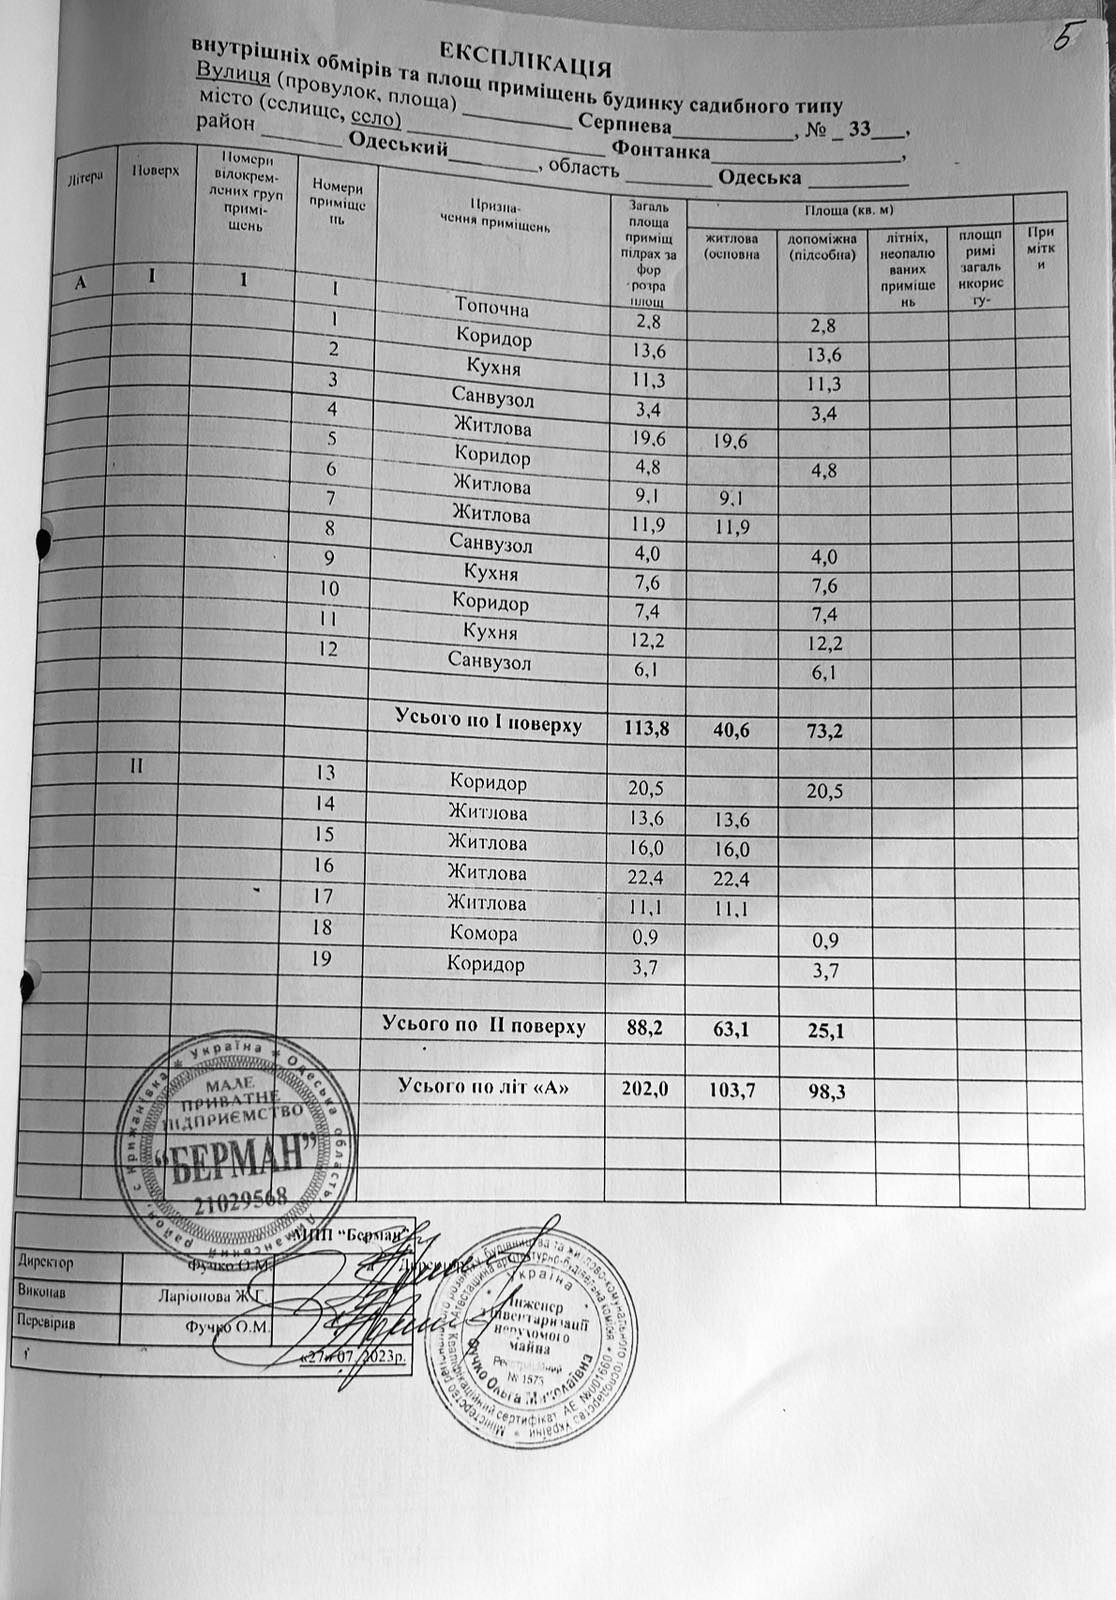 5
ЕКСПЛІКАЦІЯ
внутрішніх обмірів та площ приміщень будинку садибного типу
Вулиця (провулок, площа) ____________ Серпнева____________, № _ 33___,
місто (селище, село) ____________ Фонтанка____________,
район ________ Одеський________, область ________ Одеська ________
Літера | Поверх | Номери відокрем-лених груп примі-щень | Номери приміще нь | Призна-чення приміщень | Загаль площа приміщ підрах за фор розра площ | Площа (кв. м)
житлова (основна | допоміжна (підсобна) | літніх, неопалю ваних приміще нь | площп римі загаль нкорис ту- | При мітк и
А | І | 1 | І | Топочна | 2,8 | | 2,8
1 | Коридор | 13,6 | | 13,6
2 | Кухня | 11,3 | | 11,3
3 | Санвузол | 3,4 | | 3,4
4 | Житлова | 19,6 | 19,6
5 | Коридор | 4,8 | | 4,8
6 | Житлова | 9,1 | 9,1
7 | Житлова | 11,9 | 11,9
8 | Санвузол | 4,0 | | 4,0
9 | Кухня | 7,6 | | 7,6
10 | Коридор | 7,4 | | 7,4
11 | Кухня | 12,2 | | 12,2
12 | Санвузол | 6,1 | | 6,1
Усього по І поверху | 113,8 | 40,6 | 73,2
ІІ | 13 | Коридор | 20,5 | | 20,5
14 | Житлова | 13,6 | 13,6
15 | Житлова | 16,0 | 16,0
16 | Житлова | 22,4 | 22,4
17 | Житлова | 11,1 | 11,1
18 | Комора | 0,9 | | 0,9
19 | Коридор | 3,7 | | 3,7
Усього по ІІ поверху | 88,2 | 63,1 | 25,1
Усього по літ «А» | 202,0 | 103,7 | 98,3
Україна * Одеська область, Лиманський район, с Крижанівка *
МАЛЕ
ПРИВАТНЕ
ПІДПРИЄМСТВО
“БЕРМАН”
21029568
МПП “Берман”
Директор | Фучко О.М. | Директор
Виконав | Ларіонова Ж.Г.
Перевірив | Фучко О.М.
«27» 07. 2023р.
Україна
Кваліфікаційний сертифікат АЕ №001660
Інженер
з інвентаризації
нерухомого
майна
Реєстраційний
№ 1573
Фучко Ольга Миколаївна